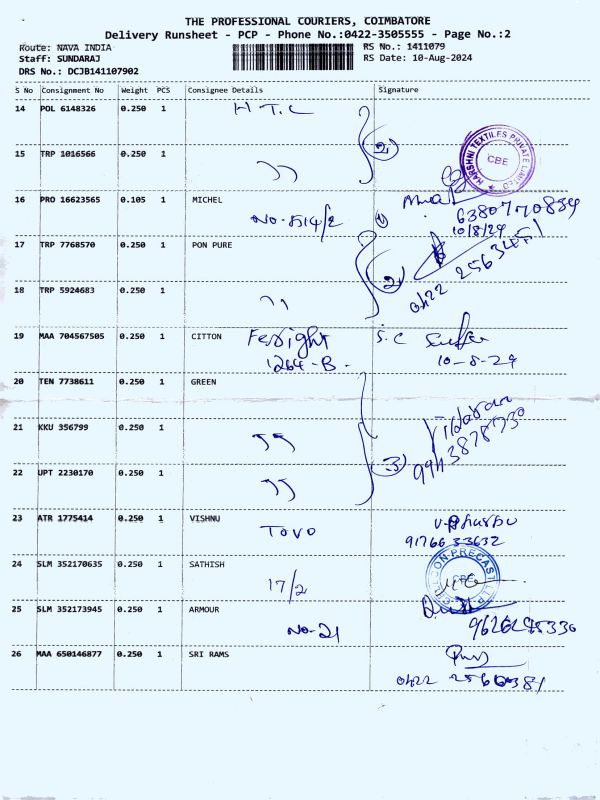 THE PROFESSIONAL COURIERS, COIMBATORE
Delivery Runsheet - PCP - Phone No.:0422-3505555 - Page No.:2
Route: NAVA INDIA RS No.: 1411079
Staff: SUNDARAJ RS Date: 10-Aug-2024
DRS No.: DCJB141107902
S No Consignment No Weight PCS Consignee Details Signature
14 POL 6148326 0.250 1 H T.C
15 TRP 1016566 0.250 1 " 2
HARSHNI TEXTILES PRIVATE LIMITED
CBE
16 PRO 16623565 0.105 1 MICHEL
NO-514/2
6380770834
10/8/24
17 TRP 7768570 0.250 1 PON PURE
0422 2563451
18 TRP 5924683 0.250 1 " 2
19 MAA 704567505 0.250 1 CITTON
1264-B. S.C
10-8-24
20 TEN 7738611 0.250 1 GREEN
21 KKU 356799 0.250 1 "
3
22 UPT 2230170 0.250 1 "
23 ATR 1775414 0.250 1 VISHNU
TOVO
91766 33632
24 SLM 352170635 0.250 1 SATHISH
17/2
PRECAST
25 SLM 352173945 0.250 1 ARMOUR
NO-21
26 MAA 650146877 0.250 1 SRI RAMS
0422